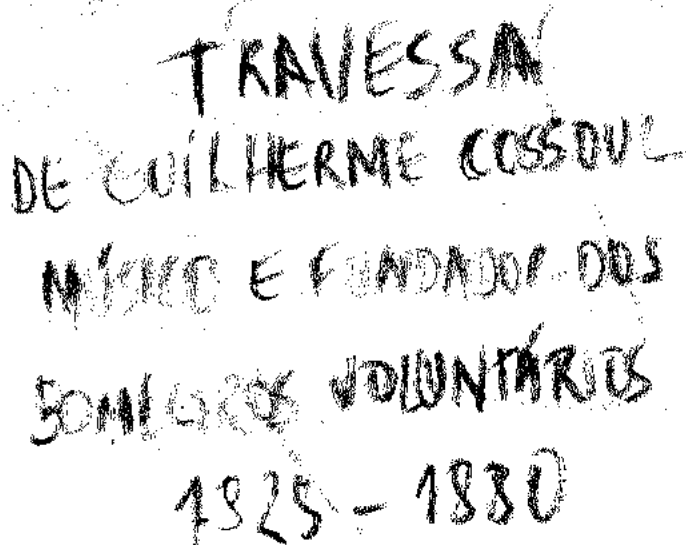 TRAVESSA
DE GUILHERME COSSOUL
MÚSICO E FUNDADOR DOS
BOMBEIROS VOLUNTÁRIOS